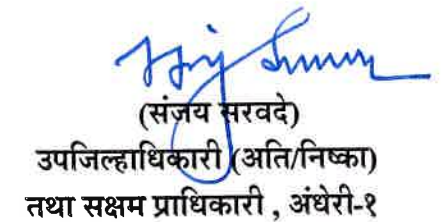 (संजय सरवदे)
उपजिल्हाधिकारी (अति/निष्का)
तथा सक्षम प्राधिकारी , अंधेरी-१